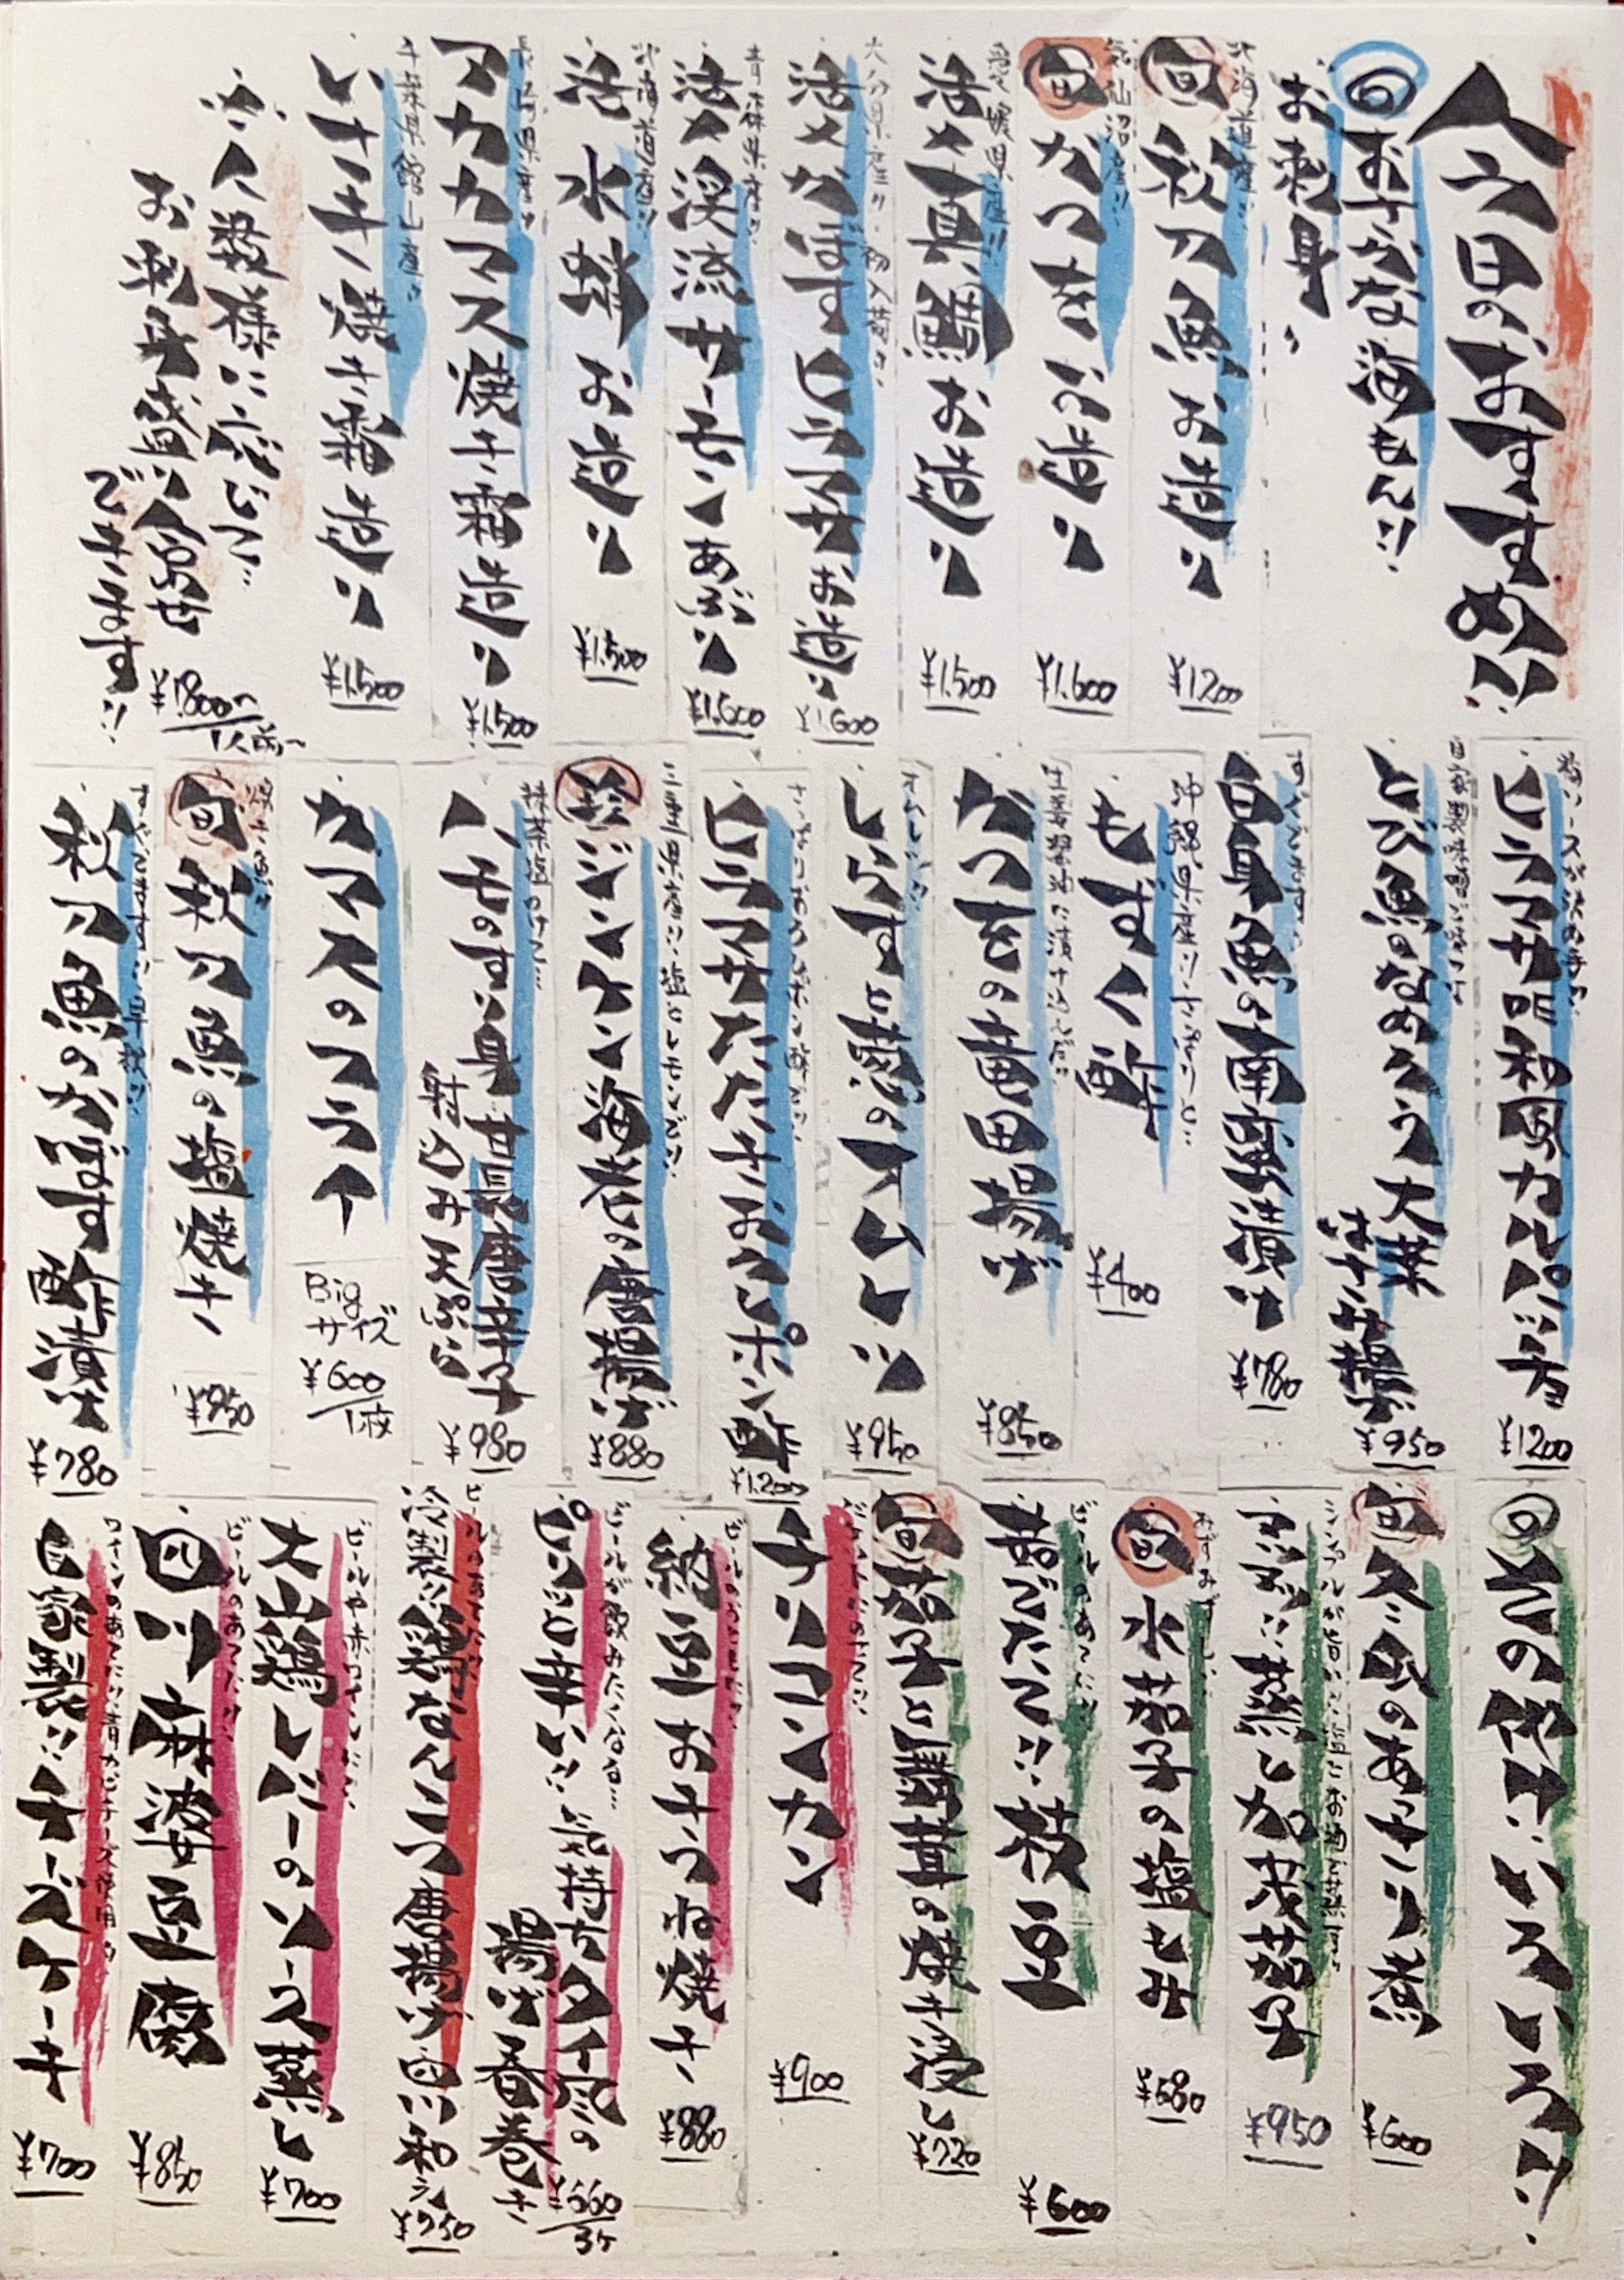 今日のおすすめ!!
お魚な海もん!!
お刺身
北海道産!!
旬 秋刀魚お造り
¥1200
気仙沼産!!
旬 かつをお造り
¥1,600
愛媛県産!!
活〆真鯛お造り
¥1,500
大分県産!! 初入荷!!
活〆かぼすヒラマサお造り
¥1,600
青森県産!!
活〆渓流サーモンあぶり
¥1,600
北海道産!!
活水蛸お造り
¥1,500
長崎県産!!
アカカマス焼き霜造り
¥1,500
千葉県館山産!!
いサキノ焼き霜造り
¥1,500
人数様に応じて…
お刺身盛り合せ
できます!!
¥1,800〜/1人前〜
ヒラマサ昆布〆カルパッチョ
¥1200
自家製味噌
とび魚のなめろう大葉
はさみ揚げ
¥950
白身魚の南蛮漬け
¥780
沖縄県産!!
もずく酢
¥400
生姜醤油に漬け込んだ
かつをの竜田揚げ
¥850
しらすと葱のオムレツ
¥950
ヒラマサたたきおろしポン酢
¥1,200
三重県産!! 塩とレモンで!!
珍 ジンケン海老の唐揚げ
¥880
抹茶塩つけて…
ハモのすり身 甘長唐辛子
射込み天ぷら
¥980
カマスのフライ
Bigサイズ
¥600/1枚
焼き魚!!
旬 秋刀魚の塩焼き
¥950
秋刀魚のかぼす酢漬け
¥780
その他!! いろいろ!!
旬 冬瓜のあっさり煮
¥600
蒸し加茂茄子
¥950
旬 水茄子の塩もみ
¥680
ビールのあてに!!
茹でたて!! 枝豆
¥600
旬 茄子と舞茸の焼き浸し
¥720
チリコンカン
¥900
納豆おきつね焼き
¥880
ビールが飲みたくなる…
ピリッと辛い!! 気持ちタイ風の
揚げ春巻き
¥660/3ヶ
冷製!! 鶏なんこつ唐揚げ 四川和え
¥750
ビールや赤ワインに!!
大山鶏レバーのソース蒸し
¥700
ビールのあてに!!
四川麻婆豆腐
¥850
ワインのあてに!! 青カビチーズ使用
自家製!! チーズケーキ
¥700